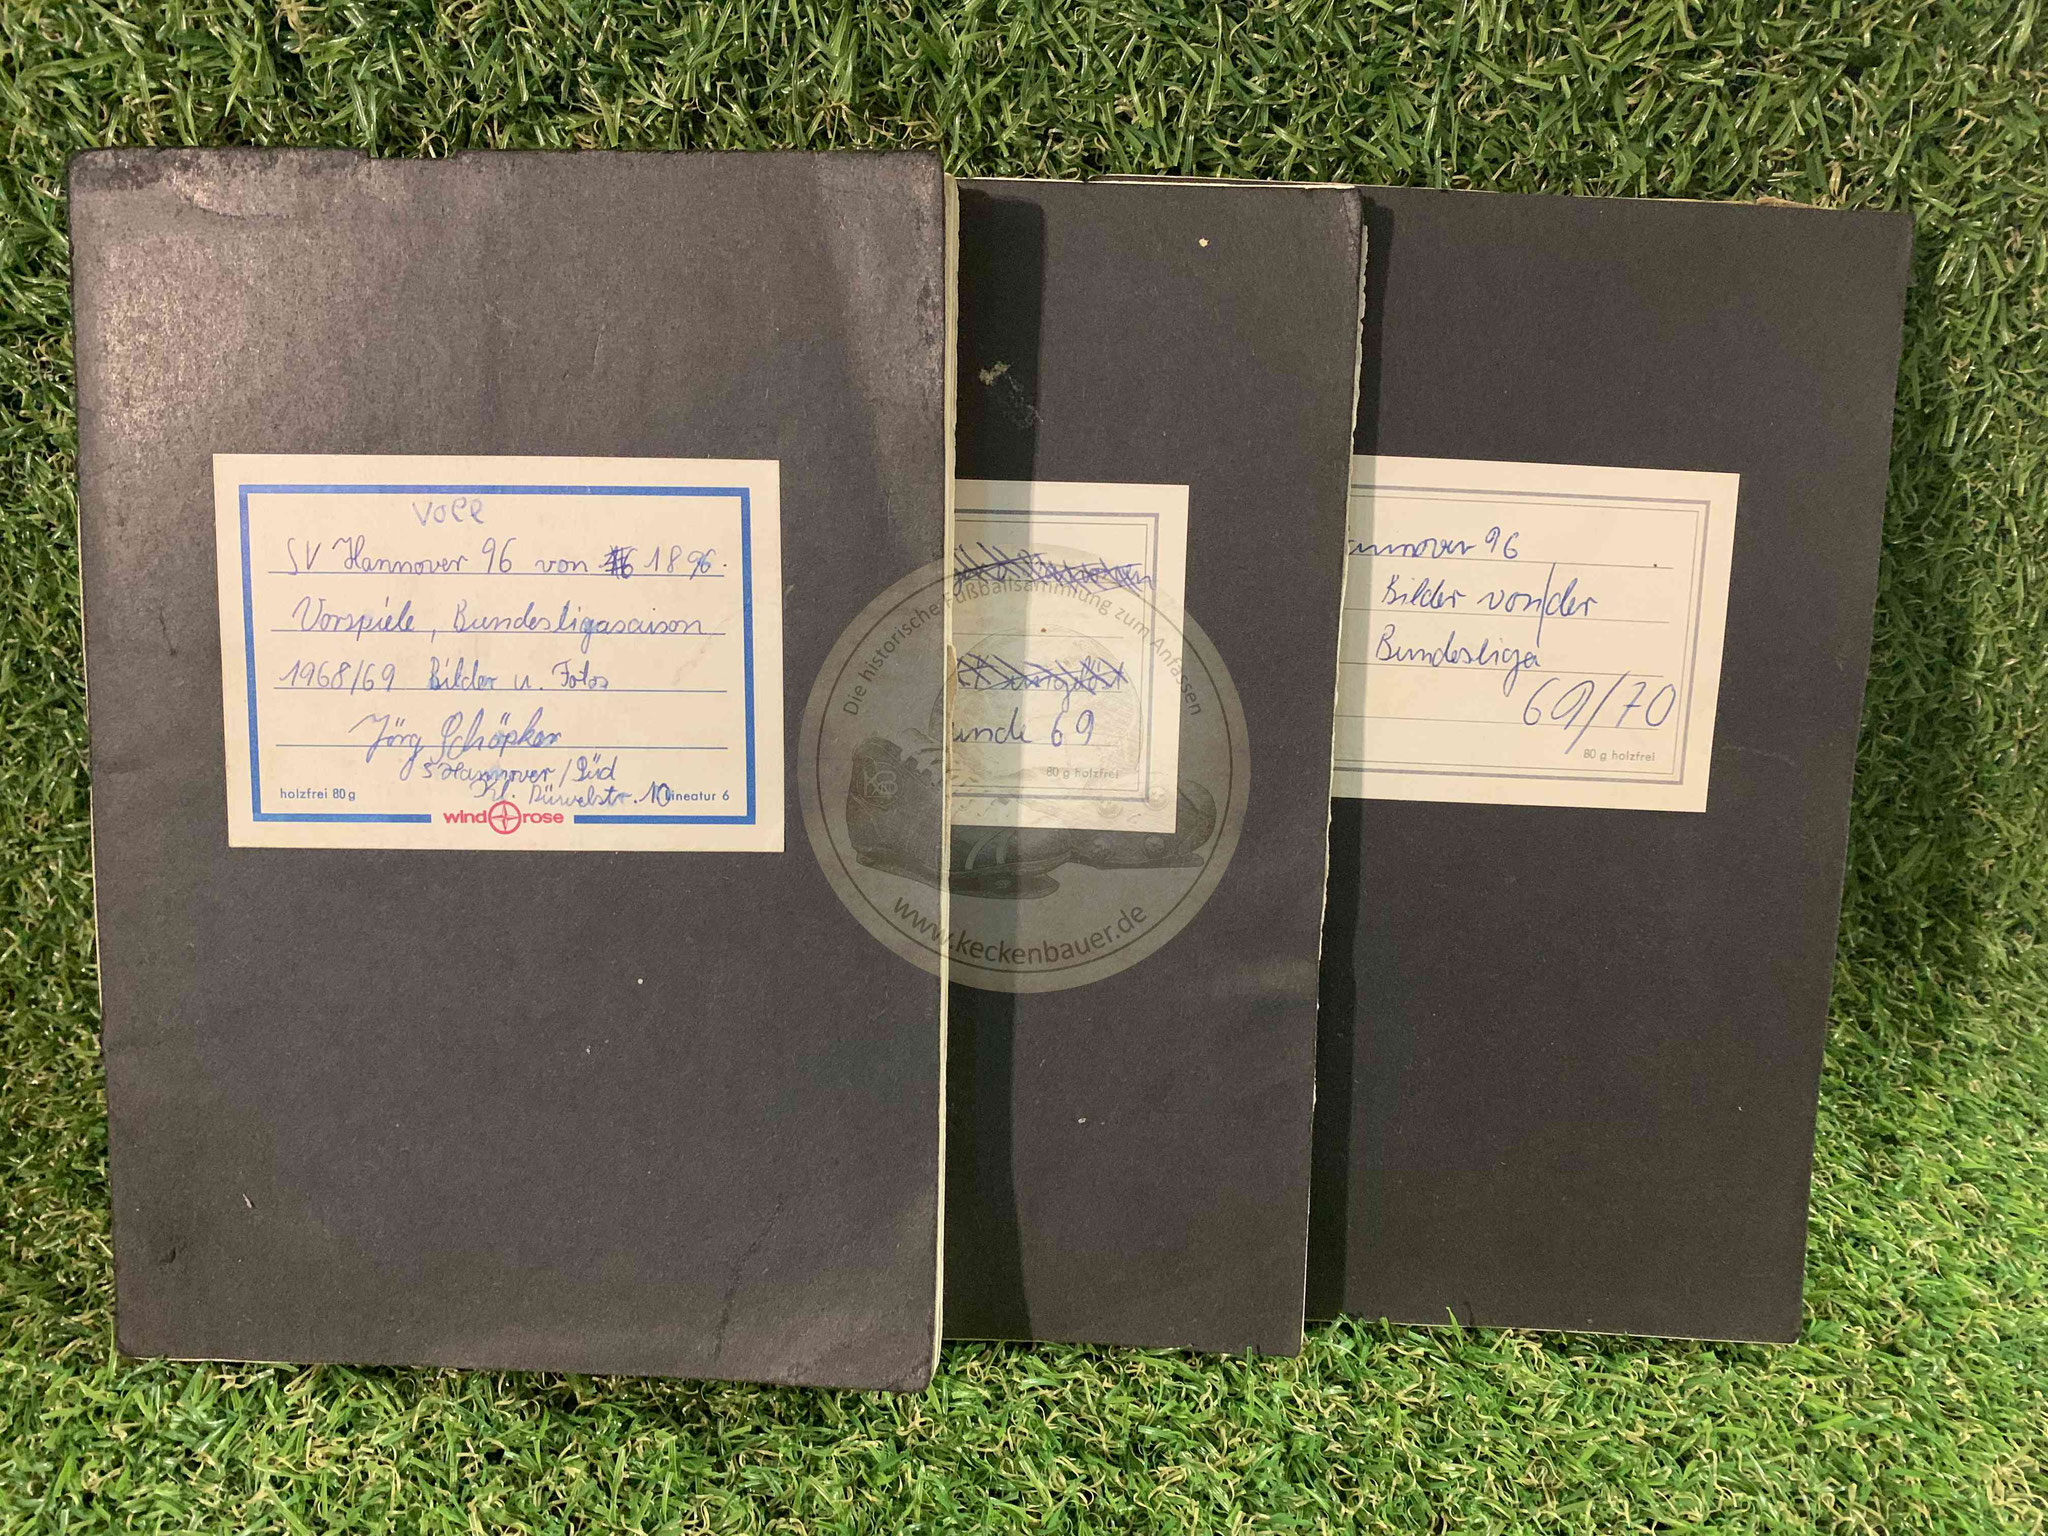 voll
SV Hannover 96 von 1896.
Vorspiele, Bundesligasaison
1968/69 Bilder u. Fotos
Jörg Schöpker
3 Hannover/Süd
Kl. Düwelstr. 10
holzfrei 80 g
Lineatur 6
wind rose
unde 69
80 g holzfrei
annover 96
Bilder von der
Bundesliga
69/70
80 g holzfrei
Die historische Fußballsammlung zum Anfassen
www.keckenbauer.de